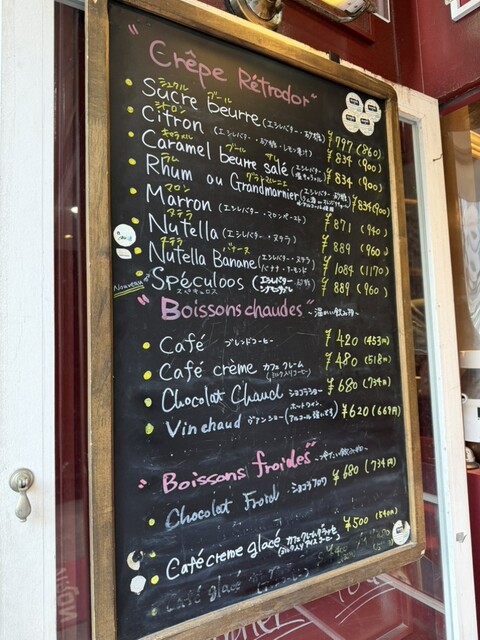 "Crêpe Rétrodor"
シュクル ブール
Sucre beurre (エシレバター・お砂糖) ¥797 (860)
シトロン
Citron (エシレバター・お砂糖・レモン果汁) ¥834 (900)
キャラメル ブール サレ
Caramel beurre salé (エシレバター・塩キャラメル) ¥834 (900)
ラム グランマルニエ
Rhum ou Grandmarnier ¥834 (900)
マロン
Marron (エシレバター・マロンペースト) ¥871 (940)
ヌテラ
Nutella (エシレバター・ヌテラ) ¥889 (960)
ヌテラ バナーヌ
Nutella Banane (エシレバター・ヌテラ バナナ・アーモンド) ¥1084 (1170)
Nouveau Spéculoos ¥889 (960)
スペキュロス
"Boissons chaudes" ~温かい飲み物~
Café ブレンドコーヒー ¥420 (453円)
Café crème カフェクレーム (ミルク入りコーヒー) ¥480 (518円)
Chocolat Chaud ショコラショー ¥680 (734円)
Vin chaud ヴァンショー (ホットワイン、アルコール強いです) ¥620 (669円)
"Boissons froides" ~冷たい飲み物~
Chocolat Froid ショコラフロワ ¥680 (734円)
Café creme glacé カフェクレームグラッセ (ミルク入りアイスコーヒー) ¥500 (540円)
Café glacé